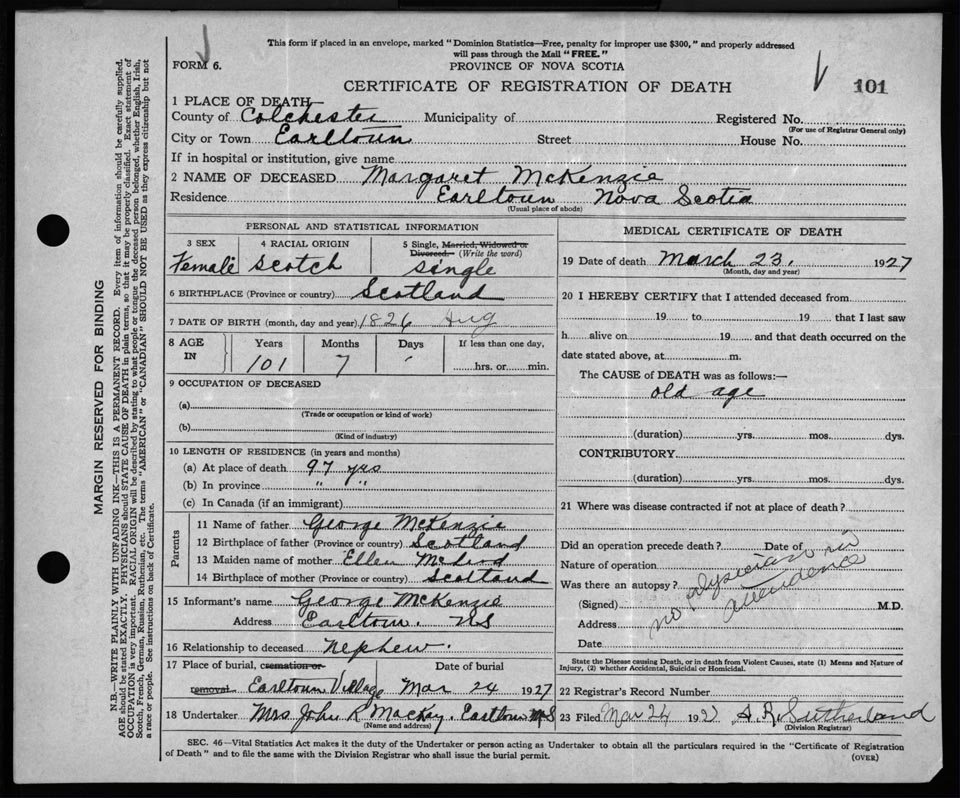 This form if placed in an envelope, marked "Dominion Statistics—Free, penalty for improper use $300," and properly addressed
will pass through the Mail "FREE."
FORM 6.
PROVINCE OF NOVA SCOTIA
CERTIFICATE OF REGISTRATION OF DEATH
101
1 PLACE OF DEATH
County of Colchester Municipality of Registered No.
(For use of Registrar General only)
City or Town Earltown Street House No.
If in hospital or institution, give name
2 NAME OF DECEASED Margaret McKenzie
Residence Earltown Nova Scotia
(Usual place of abode)
PERSONAL AND STATISTICAL INFORMATION
3 SEX 4 RACIAL ORIGIN 5 Single, Married, Widowed or Divorced. (Write the word)
Female Scotch Single
6 BIRTHPLACE (Province or country) Scotland
7 DATE OF BIRTH (month, day and year) 1826 Aug
8 AGE IN Years Months Days If less than one day,
101 7 hrs. or min.
9 OCCUPATION OF DECEASED
(a)
(Trade or occupation or kind of work)
(b)
(Kind of industry)
10 LENGTH OF RESIDENCE (in years and months)
(a) At place of death 97 yrs
(b) In province " "
(c) In Canada (if an immigrant)
Parents
11 Name of father George McKenzie
12 Birthplace of father (Province or country) Scotland
13 Maiden name of mother Ellen
14 Birthplace of mother (Province or country) Scotland
15 Informant's name George McKenzie
Address Earltown. NS
16 Relationship to deceased Nephew.
17 Place of burial, cremation or removal Date of burial
Earltown Village Mar 24 1927
18 Undertaker Mrs John R MacKay. Earltown NS
(Name and address)
MEDICAL CERTIFICATE OF DEATH
19 Date of death March 23. 1927
(Month, day and year)
20 I HEREBY CERTIFY that I attended deceased from
19 to 19 that I last saw
h alive on 19 and that death occurred on the
date stated above, at m.
The CAUSE of DEATH was as follows:—
old age
(duration) yrs. mos. dys.
CONTRIBUTORY
(duration) yrs. mos. dys.
21 Where was disease contracted if not at place of death?
Did an operation precede death? Date of
Nature of operation
Was there an autopsy?
no physician in
attendence
(Signed) M.D.
Address
Date
State the Disease causing Death, or in death from Violent Causes, state (1) Means and Nature of
Injury, (2) whether Accidental, Suicidal or Homicidal.
22 Registrar's Record Number
23 Filed Mar 24 1927 A. R. Sutherland
(Division Registrar)
SEC. 46—Vital Statistics Act makes it the duty of the Undertaker or person acting as Undertaker to obtain all the particulars required in the "Certificate of Registration
of Death" and to file the same with the Division Registrar who shall issue the burial permit.
(OVER)
MARGIN RESERVED FOR BINDING
N.B.—WRITE PLAINLY WITH UNFADING INK—THIS IS A PERMANENT RECORD. Every item of information should be carefully supplied.
AGE should be stated EXACTLY. PHYSICIANS should STATE CAUSE OF DEATH in plain terms, so that it may be properly classified. Exact statement of
OCCUPATION is very important. RACIAL ORIGIN will be described by stating to what people or tongue the deceased person belonged, whether English, Irish,
Scotch, French, German, Russian, Ruthenian, etc. The terms "AMERICAN" or "CANADIAN" SHOULD NOT BE USED as they express citizenship but not
a race or people. See instructions on back of Certificate.